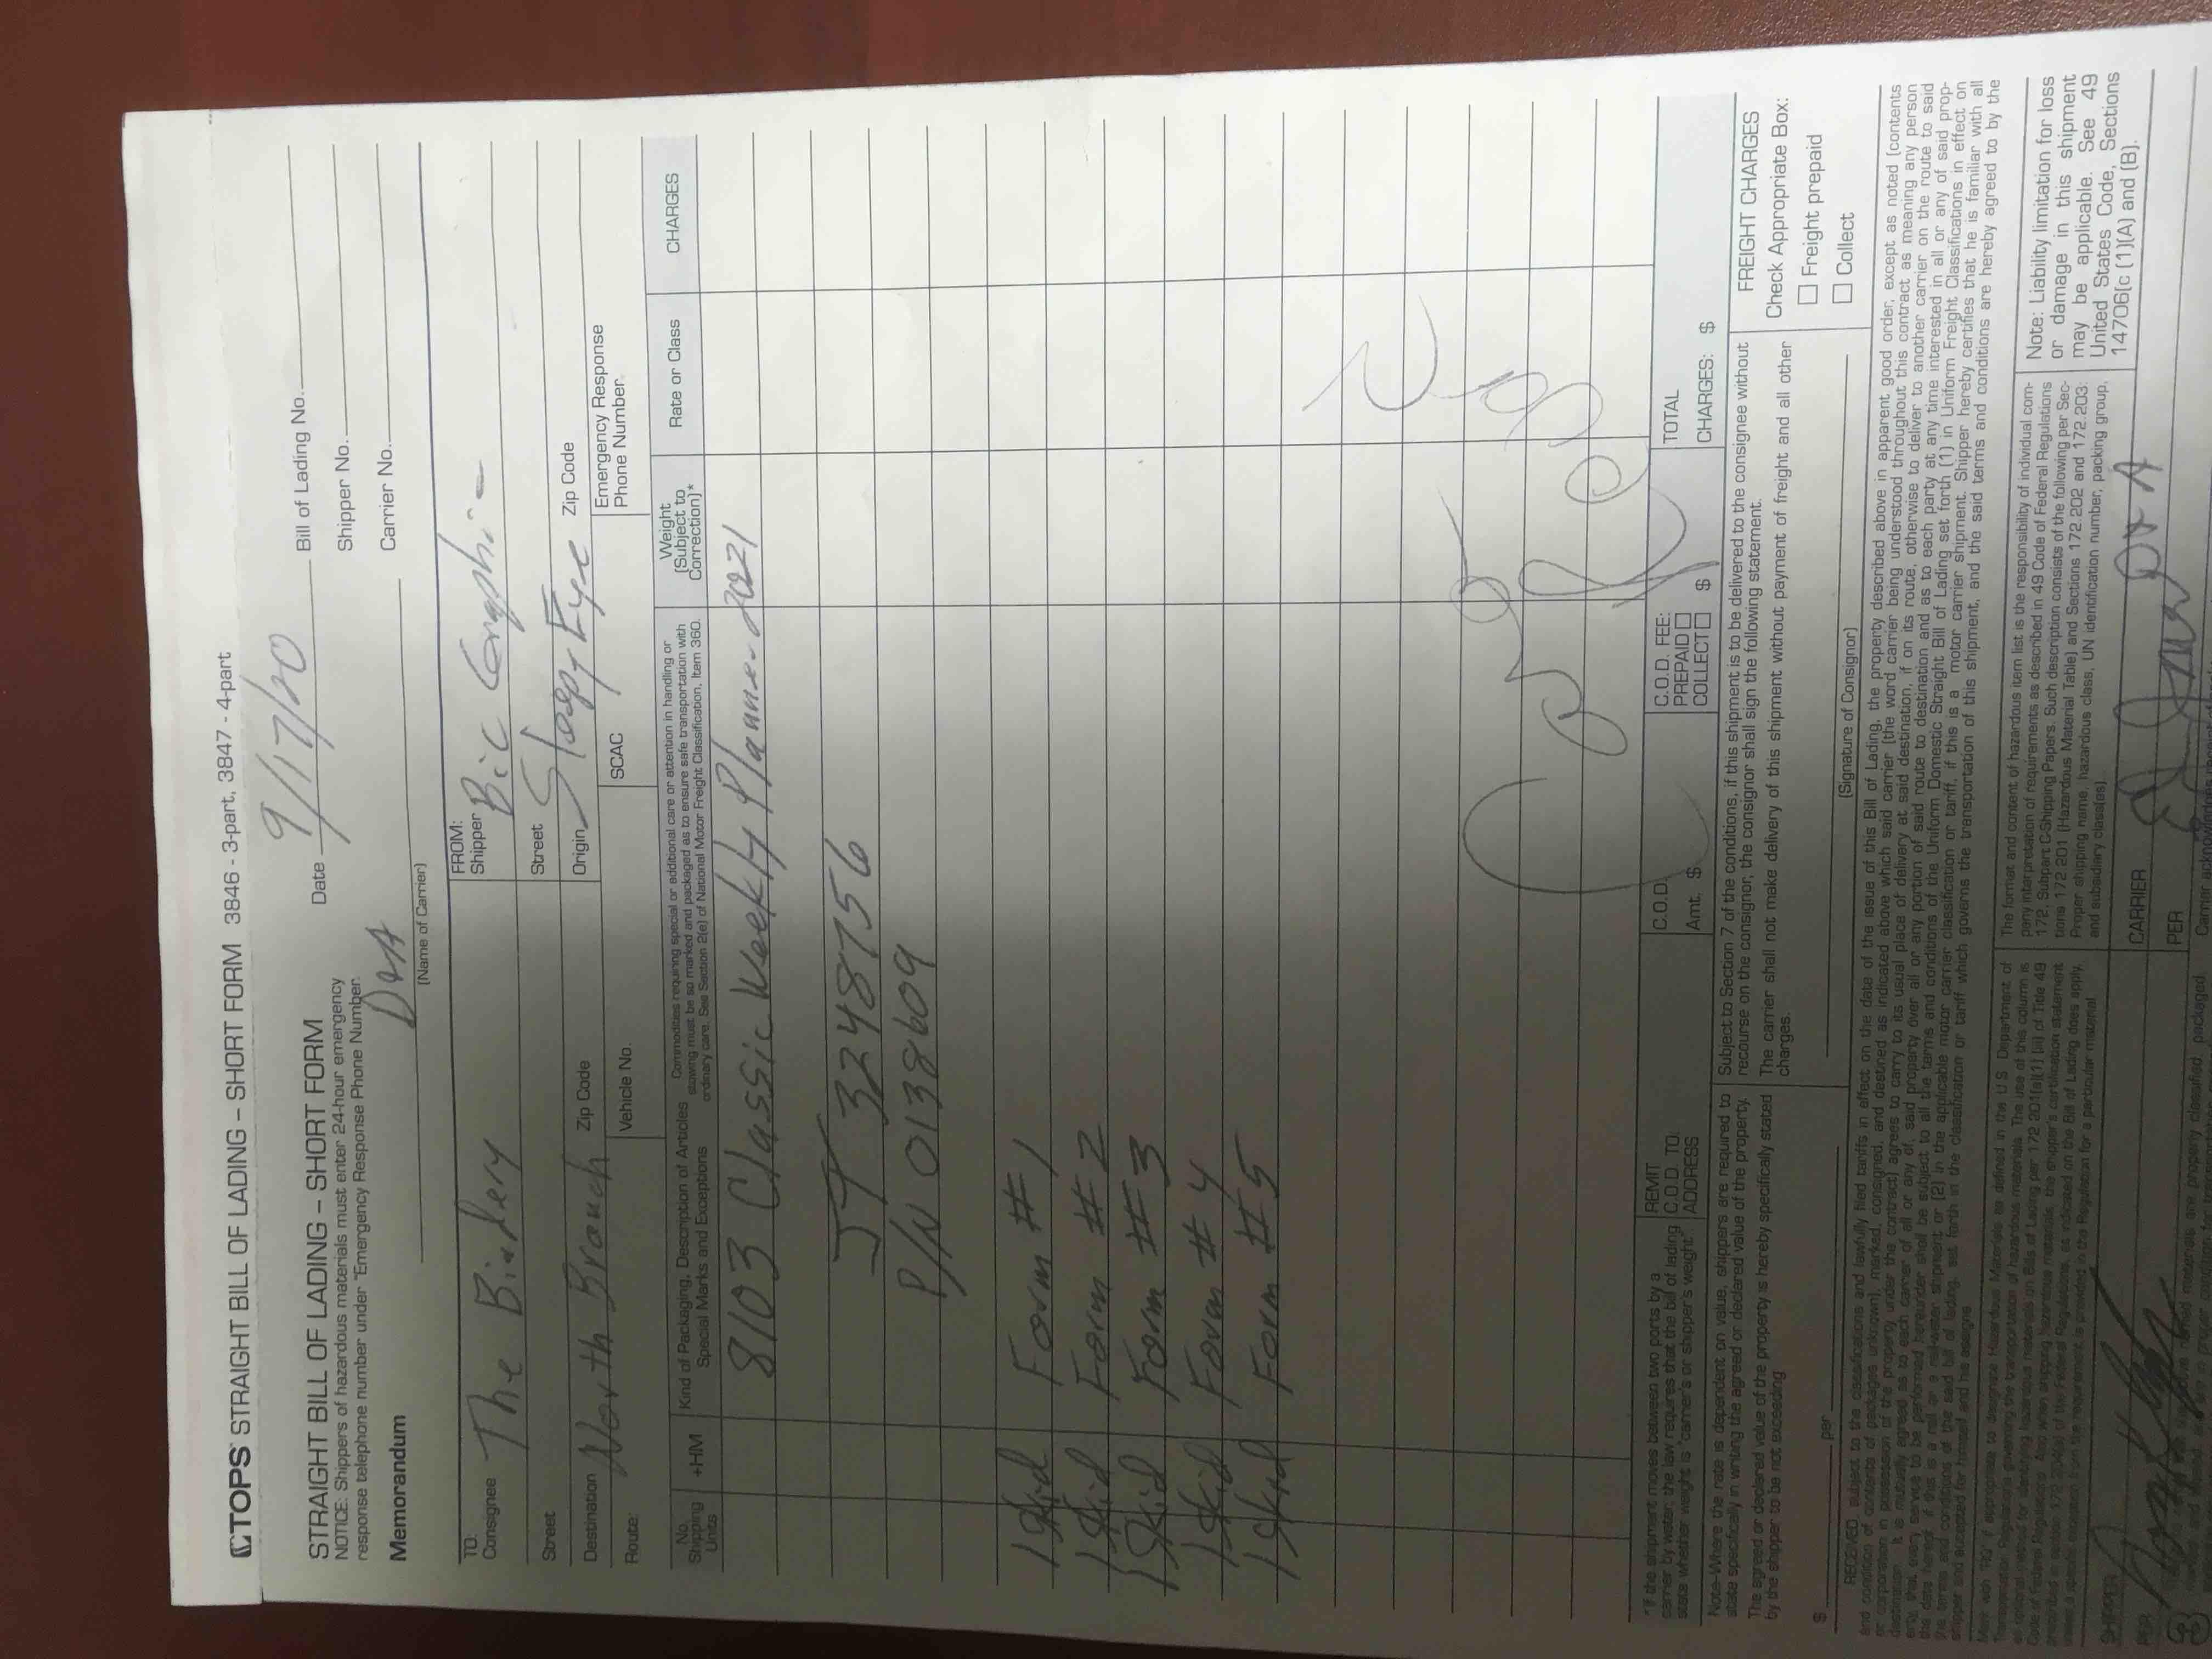 TOPS STRAIGHT BILL OF LADING – SHORT FORM 3846 - 3-part, 3847 - 4-part
STRAIGHT BILL OF LADING – SHORT FORM
NOTICE: Shippers of hazardous materials must enter 24-hour emergency
response telephone number under "Emergency Response Phone Number.
Memorandum
(Name of Carrier)
Date 9/17/20
Bill of Lading No.
Shipper No.
Carrier No.
TO:
Consignee The Bindery
Street
Destination North Branch Zip Code
Route: Vehicle No.
FROM:
Shipper Bic Graphic
Street
Origin Sleepy Eye Zip Code
SCAC
Emergency Response
Phone Number
No. Shipping Units
+HM
Kind of Packaging, Description of Articles
Special Marks and Exceptions
Commodities requiring special or additional care or attention in handling or
stowing must be so marked and packaged as to ensure safe transportation with
ordinary care. See Section 2(e) of National Motor Freight Classification, Item 360.
Weight
(Subject to
Correction)*
Rate or Class
CHARGES
8103 Classic Weekly Planner 2021
3248756
P/N 0138609
1 Skid Form #1
1 Skid Form #2
1 Skid Form #3
1 Skid Form #4
1 Skid Form #5
*If the shipment moves between two ports by a
carrier by water, the law requires that the bill of lading
state whether weight is "carrier's or shipper's weight."
REMIT
C.O.D. TO:
ADDRESS
C.O.D.
Amt. $
C.O.D. FEE:
PREPAID
COLLECT $
TOTAL
CHARGES: $
Note-Where the rate is dependent on value, shippers are required to
state specifically in writing the agreed or declared value of the property.
The agreed or declared value of the property is hereby specifically stated
by the shipper to be not exceeding
$ per
Subject to Section 7 of the conditions, if this shipment is to be delivered to the consignee without
recourse on the consignor, the consignor shall sign the following statement.
The carrier shall not make delivery of this shipment without payment of freight and all other
charges.
(Signature of Consignor)
FREIGHT CHARGES
Check Appropriate Box:
Freight prepaid
Collect
RECEIVED, subject to the classifications and lawfully filed tariffs in effect on the date of the issue of this Bill of Lading, the property described above in apparent good order, except as noted (contents
and condition of contents of packages unknown), marked, consigned, and destined as indicated above which said carrier (the word carrier being understood throughout this contract as meaning any person
or corporation in possession of the property under the contract) agrees to carry to its usual place of delivery at said destination, if on its route, otherwise to deliver to another carrier on the route to said
destination. It is mutually agreed as to each carrier of all or any of, said property over all or any portion of said route to destination and as to each party at any time interested in all or any of said prop-
erty, that every service to be performed hereunder shall be subject to all the terms and conditions of the Uniform Domestic Straight Bill of Lading set forth (1) in Uniform Freight Classifications in effect on
the date hereof, if this is a rail or a rail-water shipment, or (2) in the applicable motor carrier classification or tariff, if this is a motor carrier shipment. Shipper hereby certifies that he is familiar with all
the terms and conditions of the said bill of lading, set forth in the classification or tariff which governs the transportation of this shipment, and the said terms and conditions are hereby agreed to by the
shipper and accepted for himself and his assigns.
The format and content of hazardous item list is the responsibility of individual com-
pany interpretation of requirements as described in 49 Code of Federal Regulations
172, Subpart C-Shipping Papers. Such description consists of the following per Sec-
tions 172.201 (Hazardous Material Table) and Sections 172.202 and 172.203:
Proper shipping name, hazardous class, UN identification number, packing group,
and subsidiary class(es).
Note: Liability limitation for loss
or damage in this shipment
may be applicable. See 49
United States Code, Sections
14706(c (1)(A) and (B).
SHIPPER
PER
CARRIER
PER
3